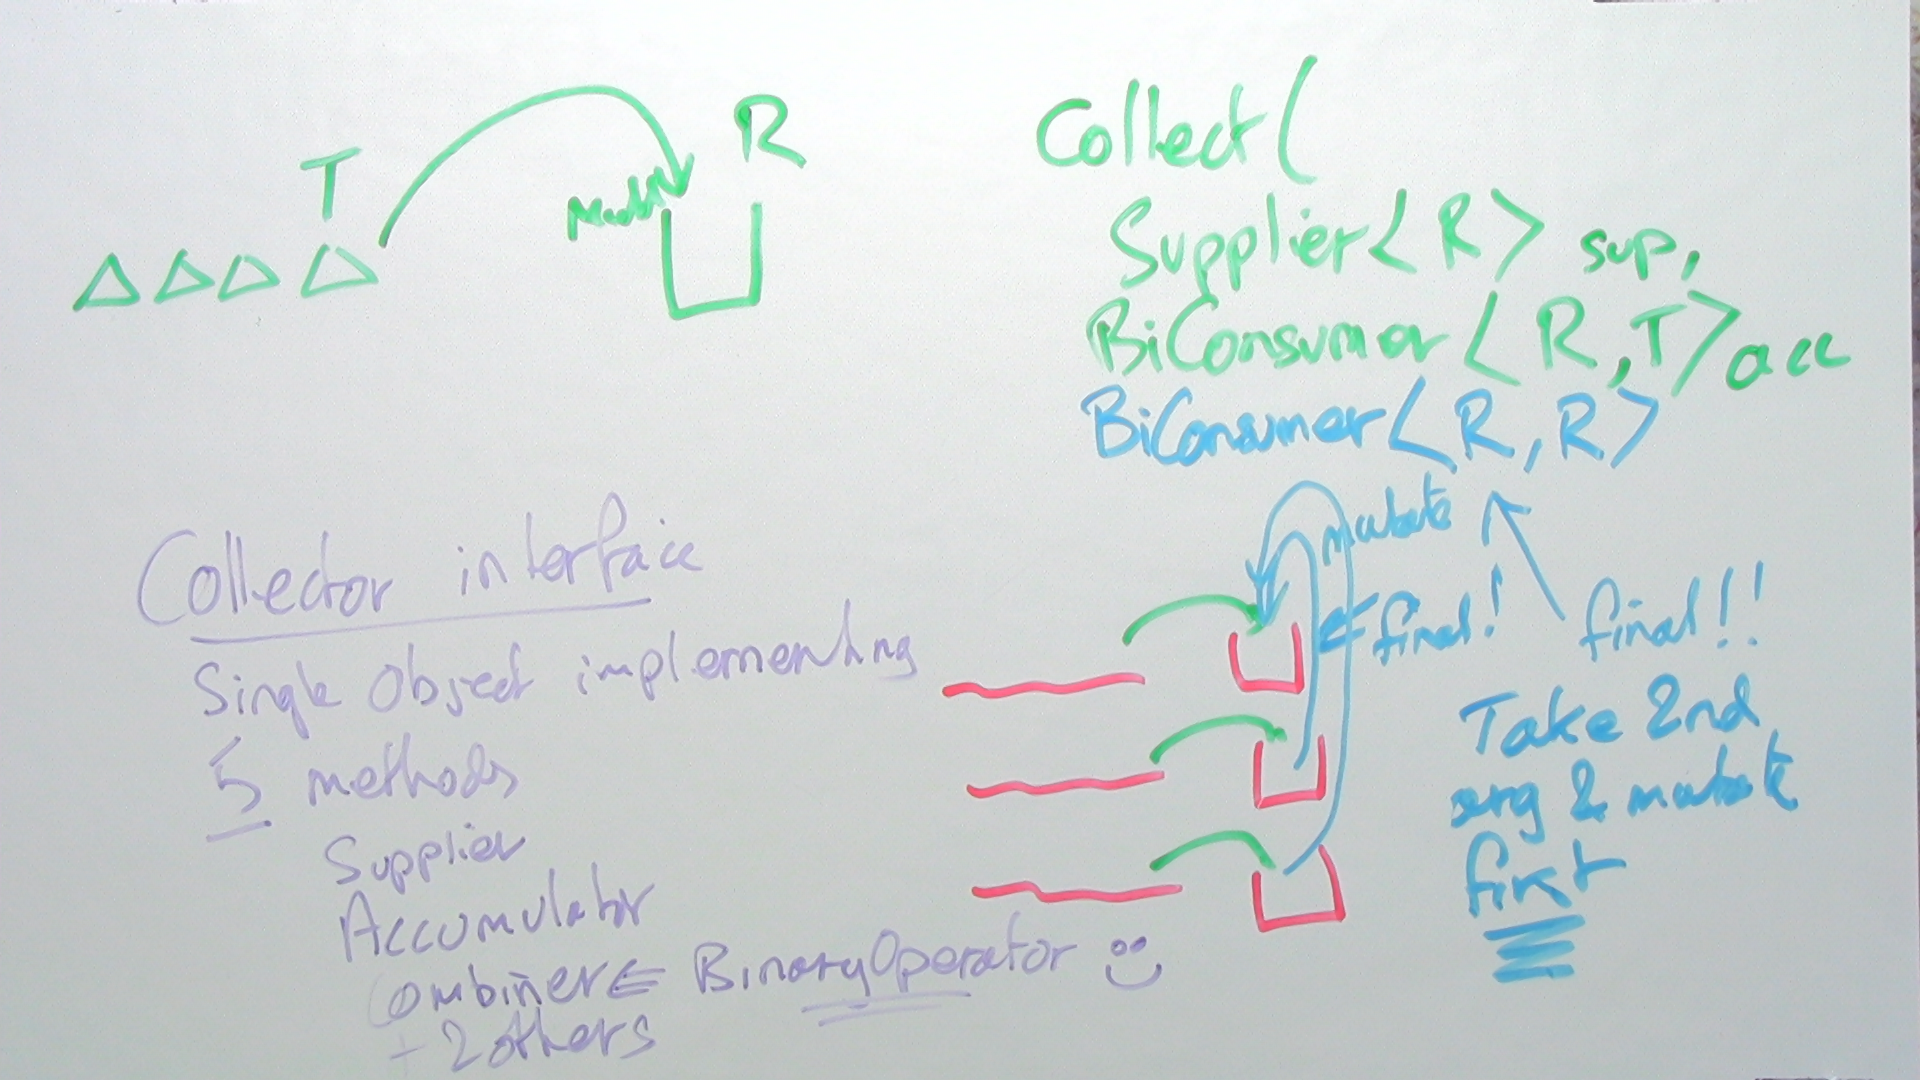 T
R
Mutate
Collect(
Supplier<R> sup,
BiConsumer<R,T> acc
BiConsumer<R,R>
mutate
final!
final!!
Take 2nd
arg & mutate
first
Collector interface
Single Object implementing
5 methods
Supplier
Accumulator
Combiner ⇐ BinaryOperator
+ 2 others